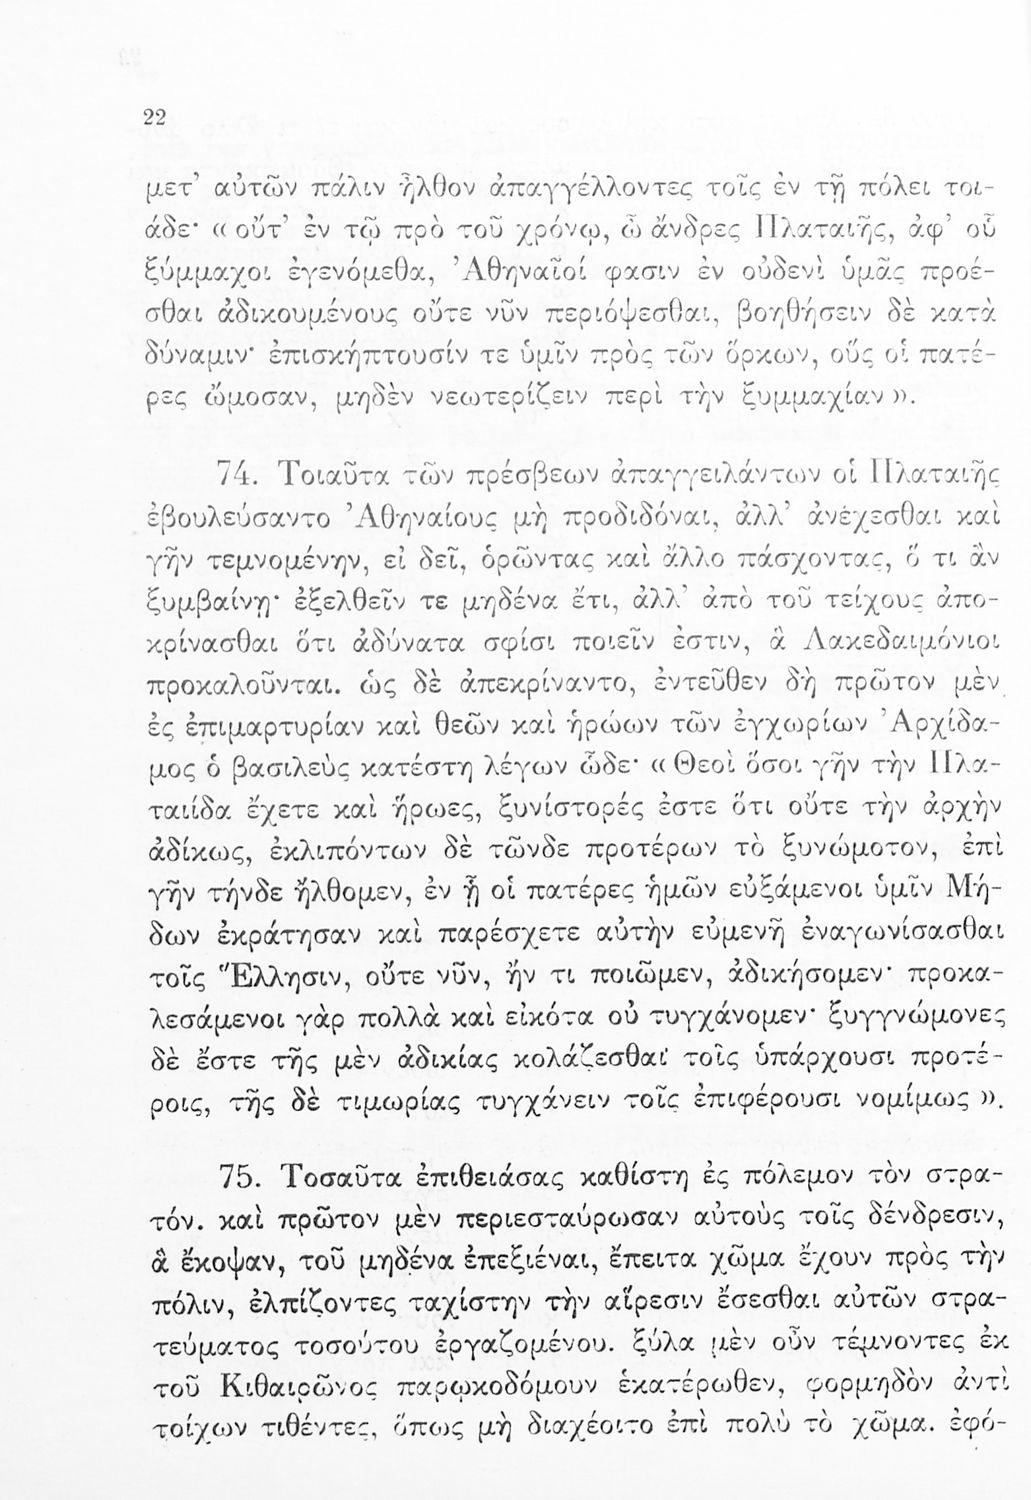 22
μετ’ αὐτῶν πάλιν ἦλθον ἀπαγγέλλοντες τοῖς ἐν τῇ πόλει τοι-
άδε· «οὔτ’ ἐν τῷ πρὸ τοῦ χρόνῳ, ὦ ἄνδρες Πλαταιῆς, ἀφ’ οὗ
ξύμμαχοι ἐγενόμεθα, Ἀθηναῖοί φασιν ἐν οὐδενὶ ὑμᾶς προέ-
σθαι ἀδικουμένους οὔτε νῦν περιόψεσθαι, βοηθήσειν δὲ κατὰ
δύναμιν· ἐπισκήπτουσίν τε ὑμῖν πρὸς τῶν ὅρκων, οὓς οἱ πατέ-
ρες ὤμοσαν, μηδὲν νεωτερίζειν περὶ τὴν ξυμμαχίαν».
74. Τοιαῦτα τῶν πρέσβεων ἀπαγγειλάντων οἱ Πλαταιῆς
ἐβουλεύσαντο Ἀθηναίους μὴ προδιδόναι, ἀλλ’ ἀνέχεσθαι καὶ
γῆν τεμνομένην, εἰ δεῖ, ὁρῶντας καὶ ἄλλο πάσχοντας, ὅ τι ἂν
ξυμβαίνῃ· ἐξελθεῖν τε μηδένα ἔτι, ἀλλ’ ἀπὸ τοῦ τείχους ἀπο-
κρίνασθαι ὅτι ἀδύνατα σφίσι ποιεῖν ἐστιν, ἃ Λακεδαιμόνιοι
προκαλοῦνται. ὡς δὲ ἀπεκρίναντο, ἐντεῦθεν δὴ πρῶτον μὲν
ἐς ἐπιμαρτυρίαν καὶ θεῶν καὶ ἡρώων τῶν ἐγχωρίων Ἀρχίδα-
μος ὁ βασιλεὺς κατέστη λέγων ὧδε· «Θεοὶ ὅσοι γῆν τὴν Πλα-
ταιίδα ἔχετε καὶ ἥρωες, ξυνίστορές ἐστε ὅτι οὔτε τὴν ἀρχὴν
ἀδίκως, ἐκλιπόντων δὲ τῶνδε προτέρων τὸ ξυνώμοτον, ἐπὶ
γῆν τήνδε ἤλθομεν, ἐν ᾗ οἱ πατέρες ἡμῶν εὐξάμενοι ὑμῖν Μή-
δων ἐκράτησαν καὶ παρέσχετε αὐτὴν εὐμενῆ ἐναγωνίσασθαι
τοῖς Ἕλλησιν, οὔτε νῦν, ἤν τι ποιῶμεν, ἀδικήσομεν· προκα-
λεσάμενοι γὰρ πολλὰ καὶ εἰκότα οὐ τυγχάνομεν· ξυγγνώμονες
δὲ ἔστε τῆς μὲν ἀδικίας κολάζεσθαι τοῖς ὑπάρχουσι προτέ-
ροις, τῆς δὲ τιμωρίας τυγχάνειν τοῖς ἐπιφέρουσι νομίμως».
75. Τοσαῦτα ἐπιθειάσας καθίστη ἐς πόλεμον τὸν στρα-
τόν. καὶ πρῶτον μὲν περιεσταύρωσαν αὐτοὺς τοῖς δένδρεσιν,
ἃ ἔκοψαν, τοῦ μηδένα ἐπεξιέναι, ἔπειτα χῶμα ἔχουν πρὸς τὴν
πόλιν, ἐλπίζοντες ταχίστην τὴν αἵρεσιν ἔσεσθαι αὐτῶν στρα-
τεύματος τοσούτου ἐργαζομένου. ξύλα μὲν οὖν τέμνοντες ἐκ
τοῦ Κιθαιρῶνος παρῳκοδόμουν ἑκατέρωθεν, φορμηδὸν ἀντὶ
τοίχων τιθέντες, ὅπως μὴ διαχέοιτο ἐπὶ πολὺ τὸ χῶμα. ἐφό-